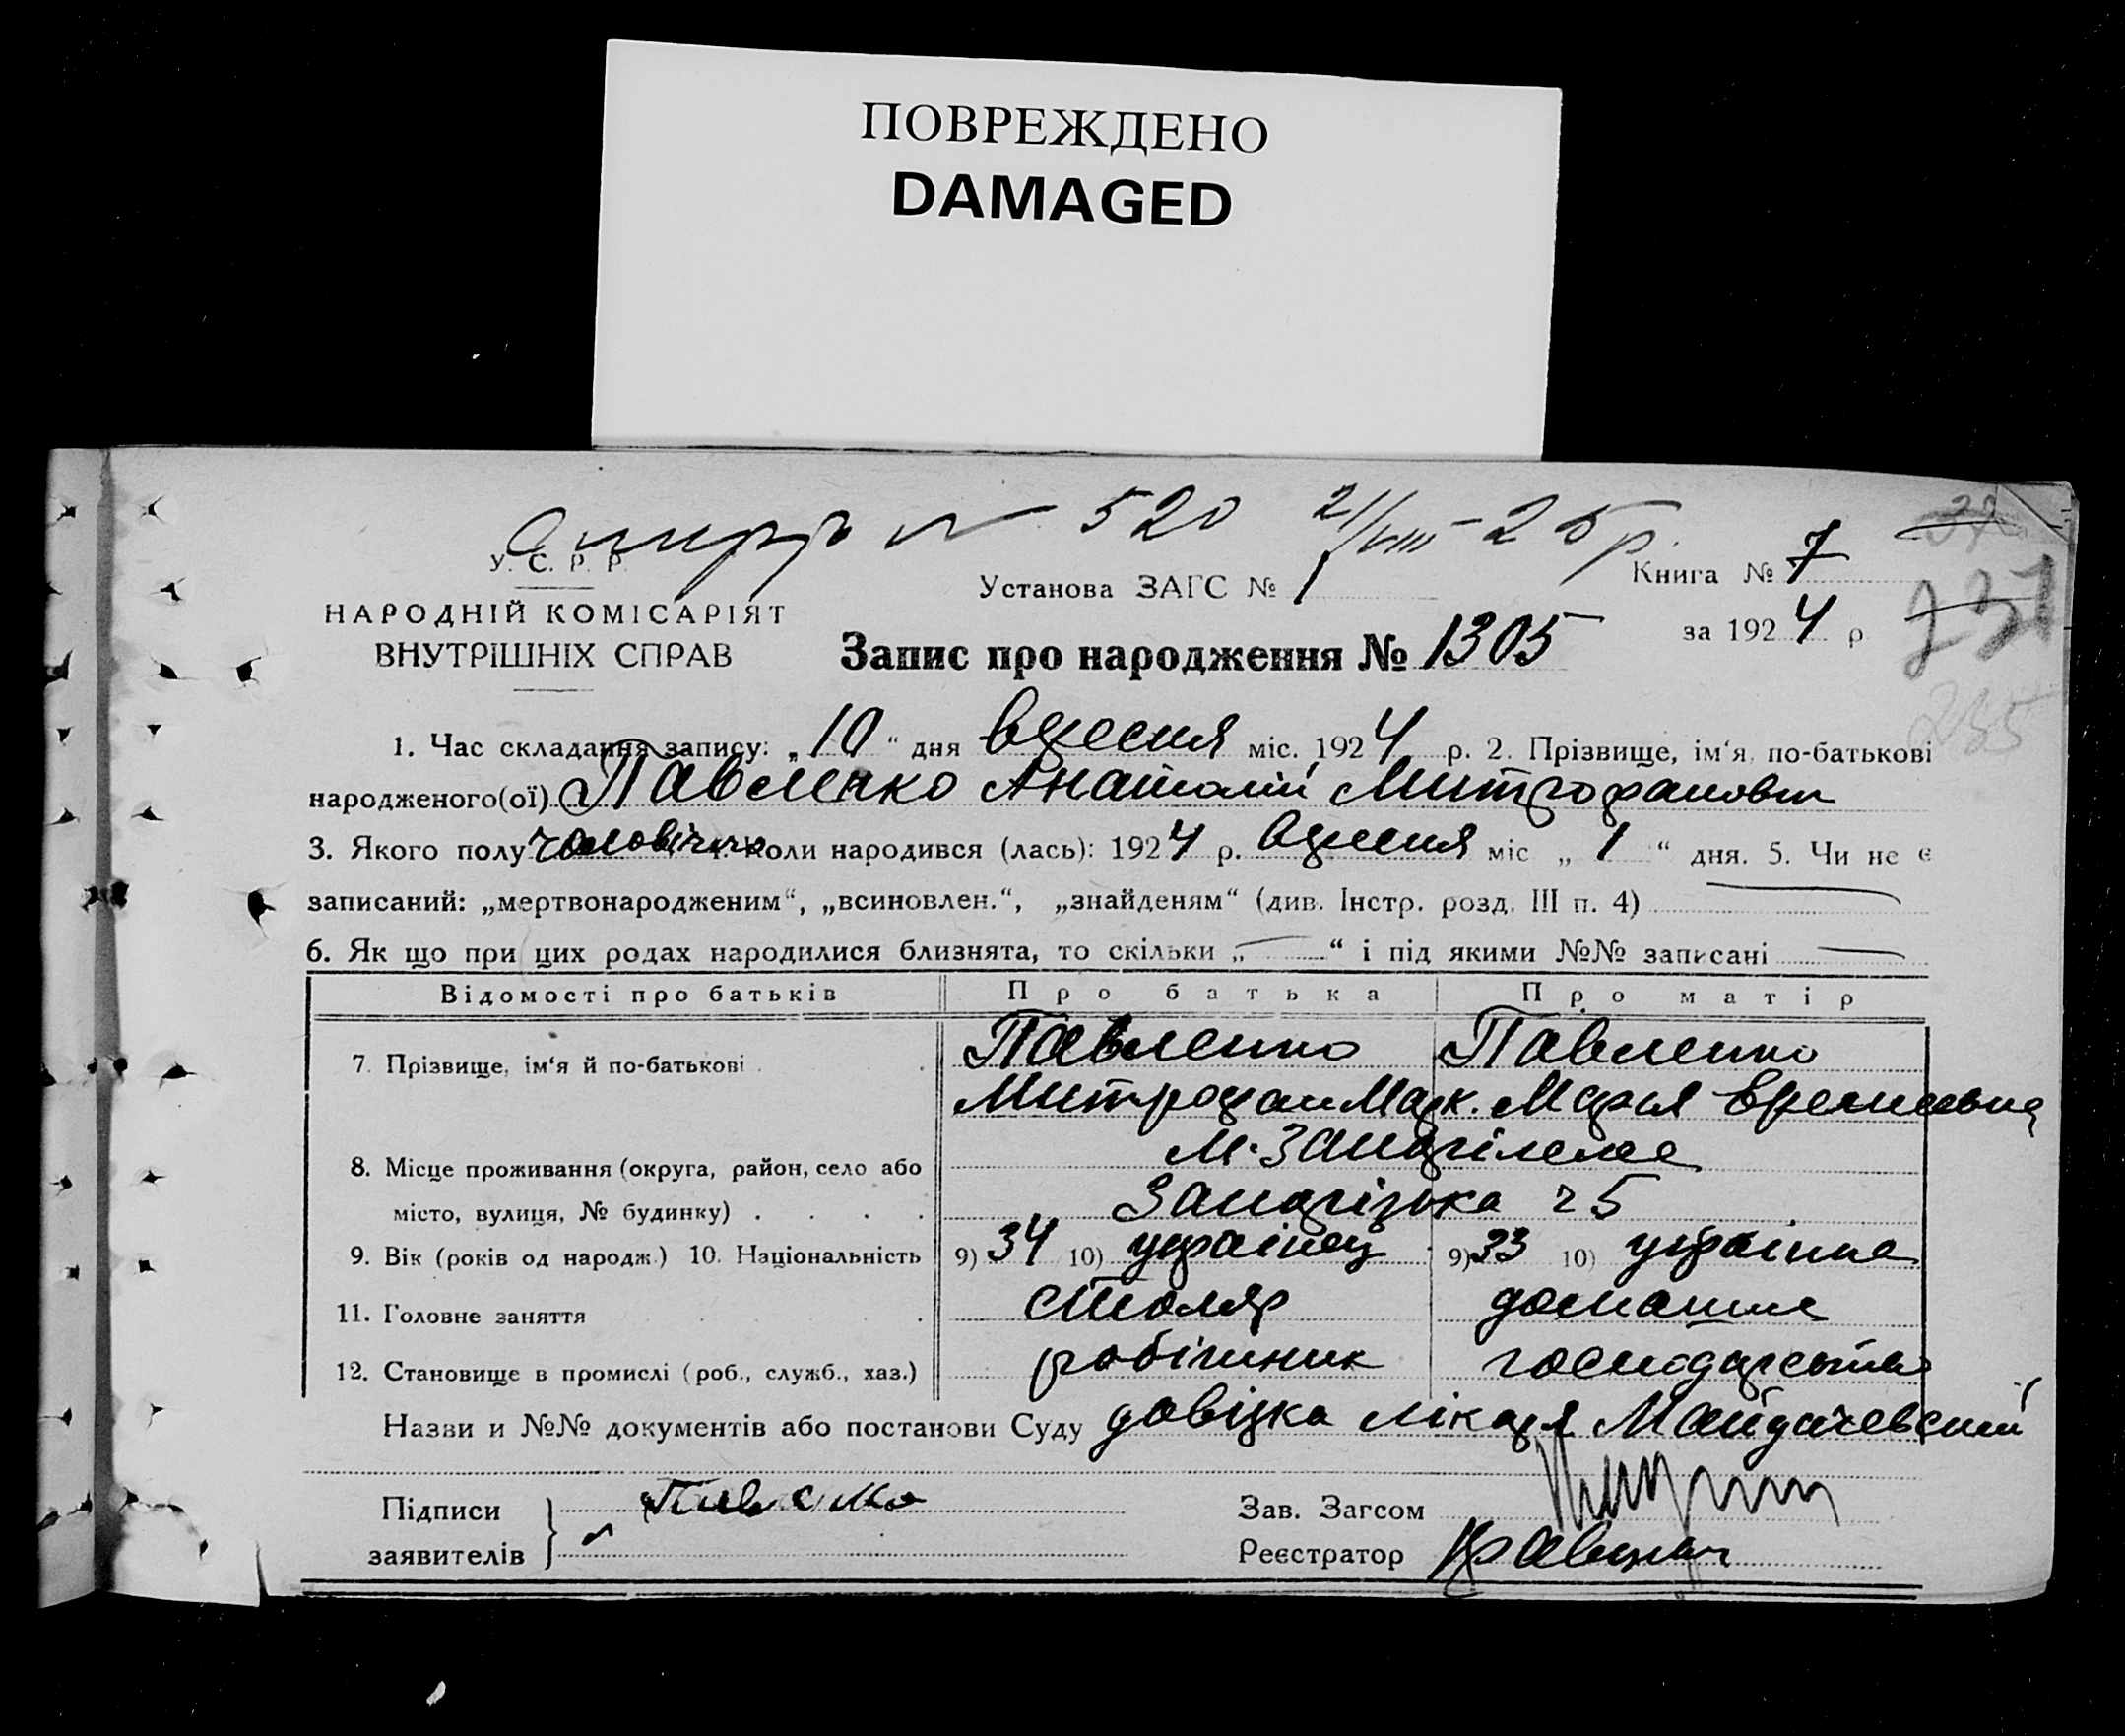 ПОВРЕЖДЕНО
DAMAGED
№ 520 21/VIII - 25 р.
У. С. Р. Р.
НАРОДНІЙ КОМІСАРІЯТ
ВНУТРІШНІХ СПРАВ
Установа ЗАГС № 1
Книга № 7
за 1924 р
37
231
235
Запис про народження № 1305
1. Час складання запису: „10“ дня вересня міс. 1924 р. 2. Прізвище, ім'я, по-батькові
народженого(ої) Павленко Анатолій Митрофанович
3. Якого полу чоловічого Коли народився (лась): 1924 р. вересня міс „1“ дня. 5. Чи не є
записаний: „мертвонародженим“, „всиновлен.“, „знайденям“ (див. Інстр. розд. III п. 4)
6. Як що при цих родах народилися близнята, то скільки „ — “ і під якими №№ записані —
Відомості про батьків Про батька Про матір
7. Прізвище, ім'я й по-батькові Павленко Павленко
Митрофан Марк. Марія
8. Місце проживання (округа, район, село або
місто, вулиця, № будинку) 25
9. Вік (років од народж.) 10. Національність 9) 34 10) українец 9) 33 10) українка
11. Головне заняття столяр домашнє
12. Становище в промислі (роб., служб., хаз.) робітник господарство
Назви и №№ документів або постанови Суду довідка лікаря
Підписи
заявителів
Зав. Загсом
Реєстратор